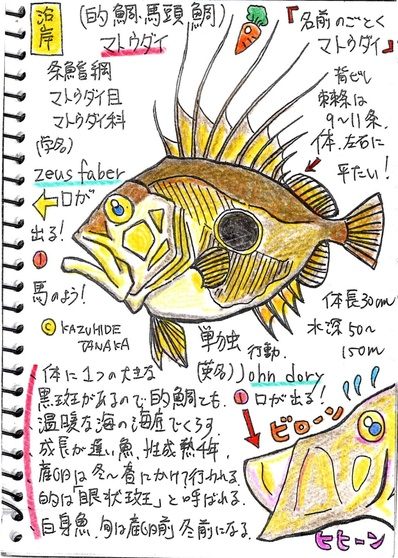 沿岸
(的鯛、馬頭鯛)
マトウダイ
『名前のごとく
マトウダイ』
条鰭綱
マトウダイ目
マトウダイ科
(学名)
zeus faber
背ビレ
棘条は
9〜11条、
体、左右に
平たい!
口が
出る!
馬のよう!
© KAZUHIDE
TANAKA
単独
行動、
体長30cm
水深50〜
150m
(英名) John dory
口が出る!
ビローン
体に1つの大きな
黒斑があるので的鯛とも、
温暖な海の海底でくらす、
成長が遅い魚、性成熟4年、
産卵は冬〜春にかけて行われる。
的は「眼状斑」と呼ばれる。
白身魚、旬は産卵前、冬前になる。
ヒヒーン